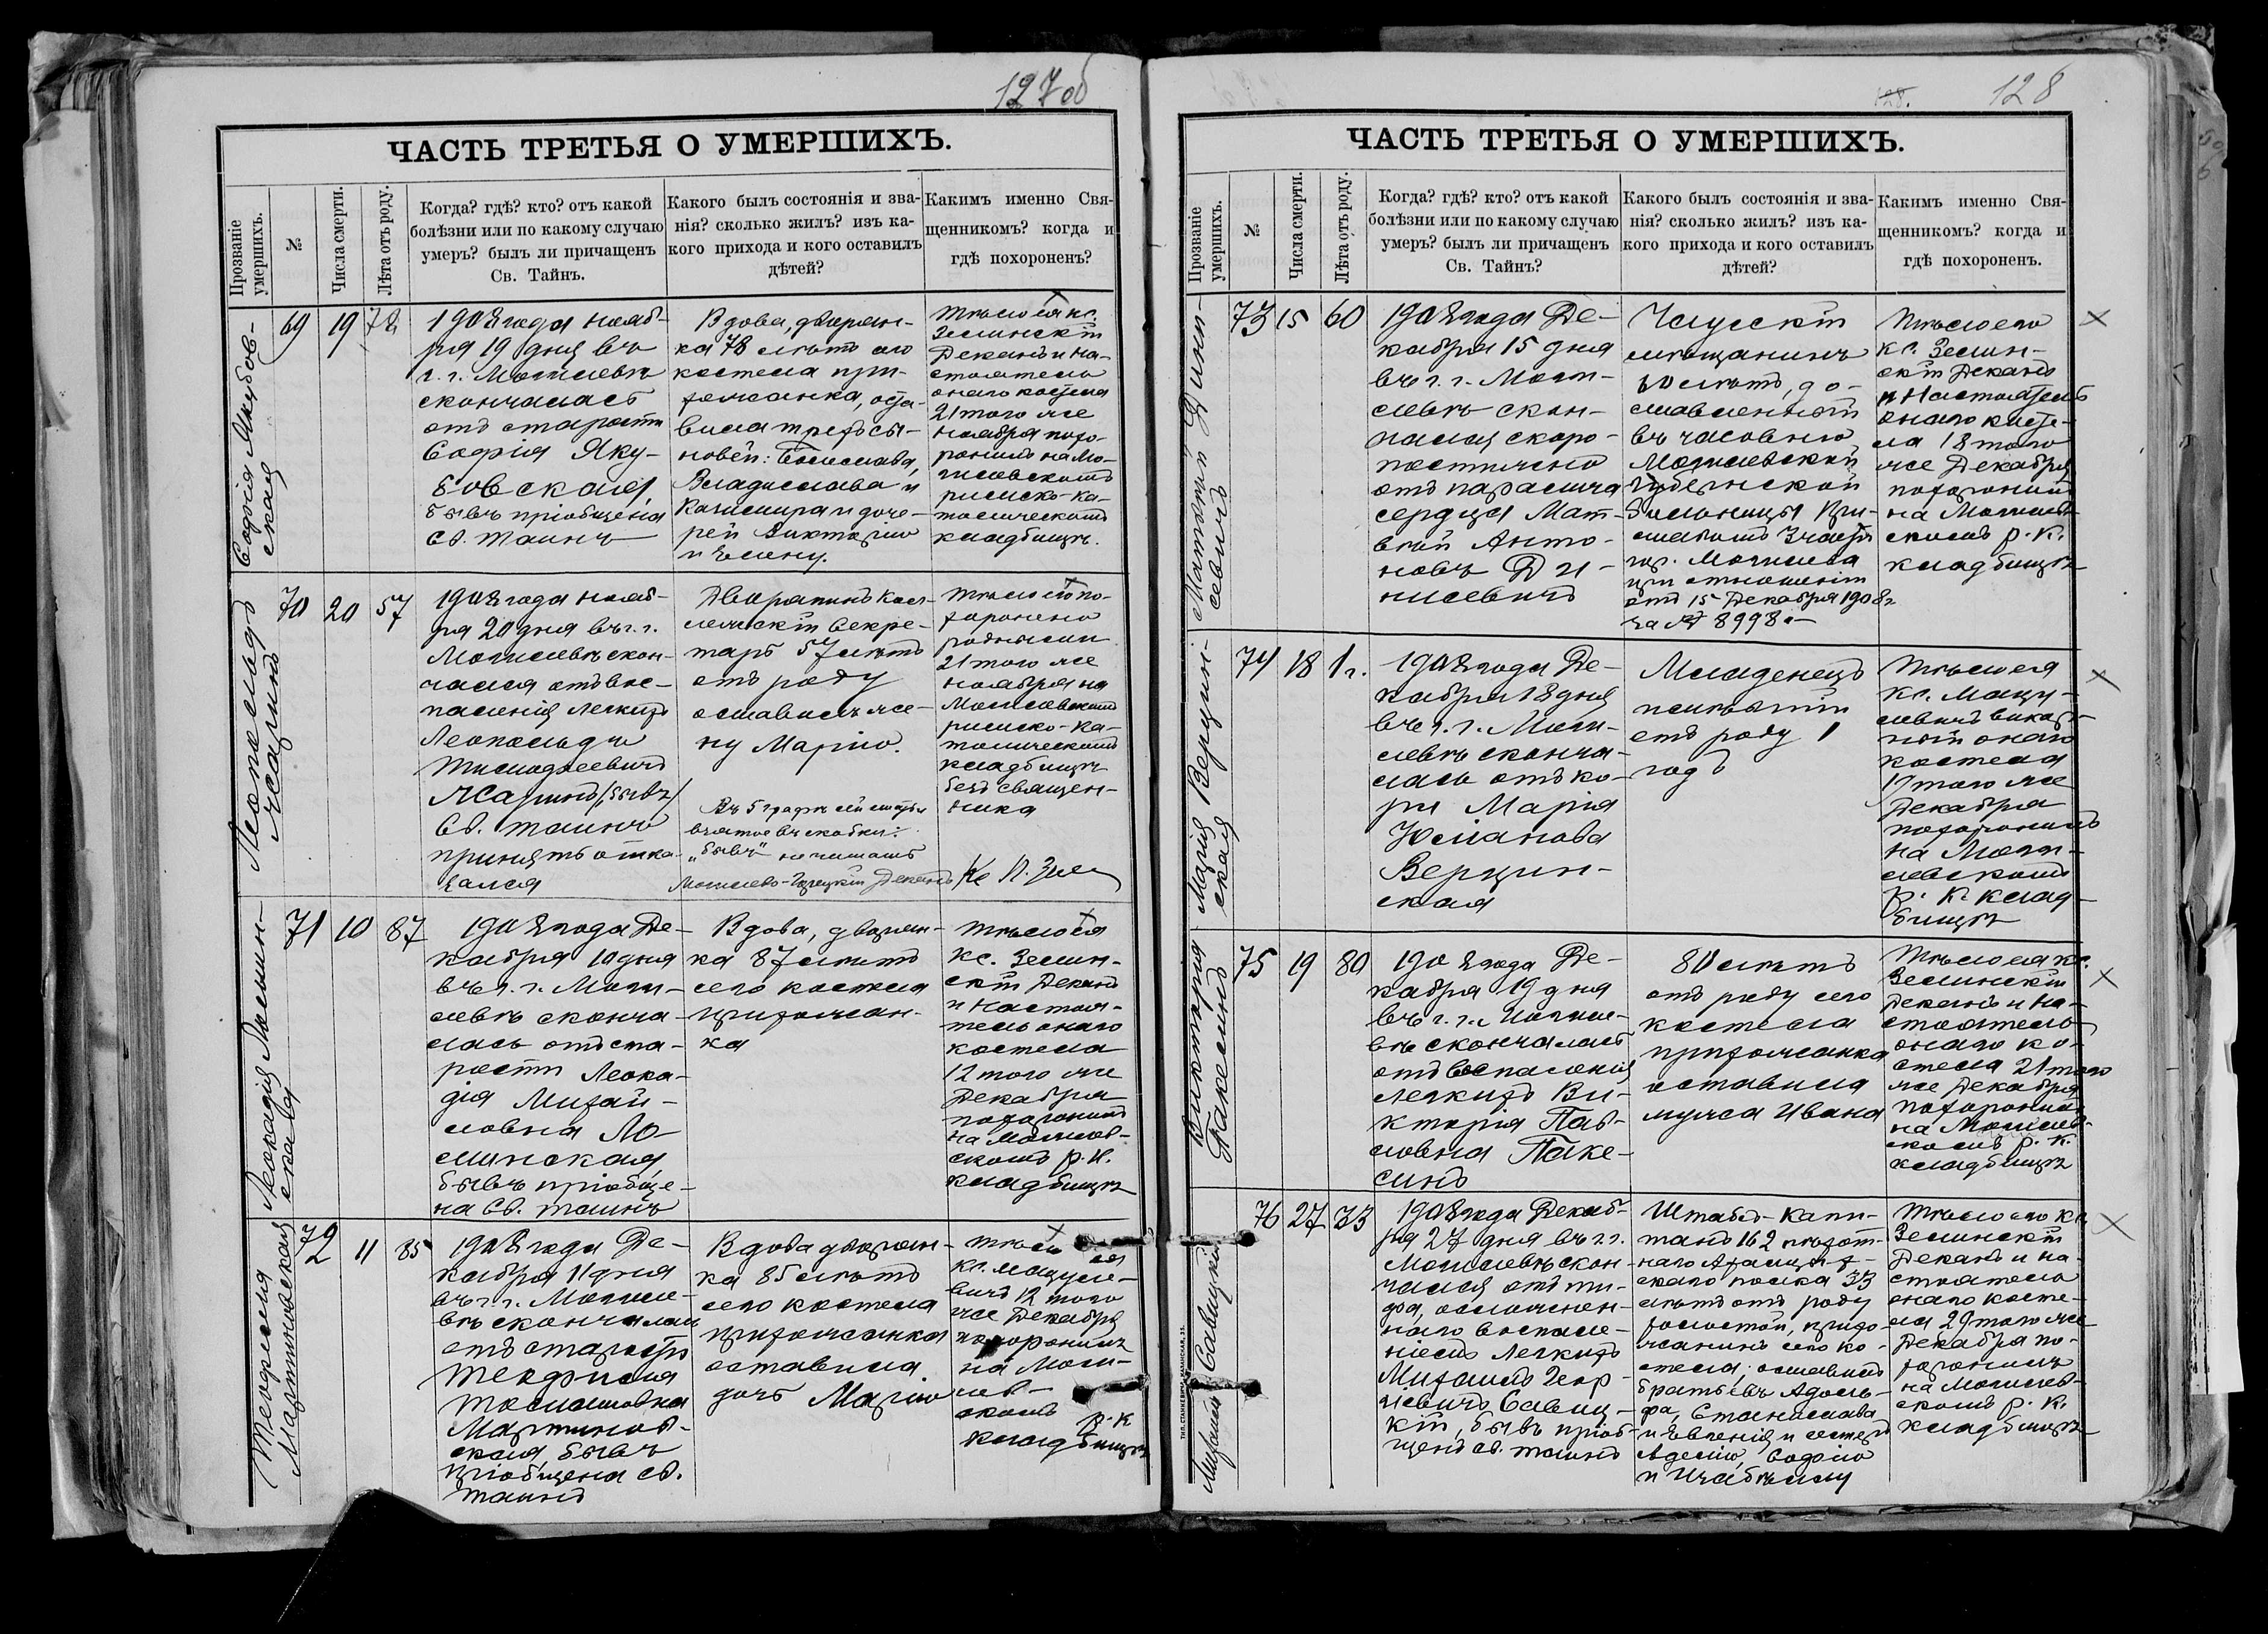 127об
ЧАСТЬ ТРЕТЬЯ О УМЕРШИХЪ.
Прозваніе умершихъ.
№
Числа смерти.
Лѣта отъ роду.
Когда? гдѣ? кто? отъ какой
болѣзни или по какому случаю
умеръ? былъ ли причащенъ
Св. Тайнъ.
Какого былъ состоянія и зва-
нія? сколько жилъ? изъ ка-
кого прихода и кого оставилъ
дѣтей?
Какимъ именно Свя-
щенникомъ? когда и
гдѣ похороненъ?
Софія Якубов-
ская
69
19
78
1908 года нояб-
ря 19 дня въ
г. г. Могилевѣ
скончалась
отъ старости
Софія Яку-
бовская,
бывъ пріобщена
Св. таинъ
Вдова, дворян-
ка 78 лѣтъ сего
костела при-
хожанка, оста-
вила трехъ сы-
новей: Болислава,
Владислава и
Казимира и доче-
рей Викторію
и Елену.
Тѣло ея кс.
Зелинскій
Деканъ и на-
стоятель
онаго костела
21 того же
ноября похо-
ронилъ на Мо-
гилевскомъ
римско-ка-
толическомъ
кладбищѣ.
Леопольдъ
Жаринъ
70
20
57
1908 года нояб-
ря 20 дня въ г. г.
Могилевѣ скон-
чался отъ вос-
паленія легкихъ
Леопольдъ
Жаринъ /бывъ/
Св. таинъ
принять отка-
зался
Дворянинъ Кол-
лежскій Секре-
тарь 57 лѣтъ
отъ роду
оставилъ же-
ну Марію.
Въ 5 графѣ сей статьи
взятое въ скобки:
„бывъ" не читать
Могилево-Горецкій Деканъ
Тѣло его по-
хоронено
родными
21 того же
ноября на
Могилевскомъ
римско-ка-
толическомъ
кладбищѣ
безъ священ-
ника
Леокадія Ломин-
ская
71
10
87
1908 года Де-
кабря 10 дня
въ г. г. Моги-
левѣ сконча-
лась отъ ста-
рости Леока-
дія Михай-
ловна Ло-
минская,
бывъ пріобще-
на Св. таинъ
Вдова, дворян-
ка 87 лѣтъ
сего костела
прихожан-
ка
Тѣло ея
кс. Зелин-
скій Деканъ
и Настоя-
тель онаго
костела
12 того же
Декабря
похоронилъ
на Могилев-
скомъ р. к.
кладбищѣ
Теофилія
Мартиновская
72
11
85
1908 года Де-
кабря 11 дня
въ г. г. Могиле-
вѣ скончалась
отъ старости
Теофилія
Томашовна
Мартинов-
ская, бывъ
пріобщена Св.
таинъ
Вдова дворян-
ка 85 лѣтъ
сего костела
прихожанка
оставила
дочь Марію
Тѣло ея
кс. Мацуле-
вичъ 12 того
же Декабря
похоронилъ
на Моги-
лев-
скомъ р. к
кладбищѣ
128.
128
ЧАСТЬ ТРЕТЬЯ О УМЕРШИХЪ.
Прозваніе умершихъ.
№
Числа смерти.
Лѣта отъ роду.
Когда? гдѣ? кто? отъ какой
болѣзни или по какому случаю
умеръ? былъ ли причащенъ
Св. Тайнъ?
Какого былъ состоянія и зва-
нія? сколько жилъ? изъ ка-
кого прихода и кого оставилъ
дѣтей?
Какимъ именно Свя-
щенникомъ? когда и
гдѣ похороненъ.
Матвій Дини-
севичъ
73
15
60
1908 года Де-
кабря 15 дня
въ г. г. Моги-
левѣ скон-
чался скоро-
постижно
отъ паралича
сердца Мат-
вѣй Анто-
новъ Ди-
нисевичъ
Чаусскій
мѣщанинъ
60 лѣтъ, до-
ставленный
въ часовню
Могилевской
Губернской
больницы При-
ставомъ 3 части
гор. Могилева
при отношеніи
отъ 15 Декабря 1908 г.
за № 8998.
Тѣло его
кс. Зелин-
скій Деканъ
и Настоятель
онаго косте-
ла 18 того
же Декабря
похоронилъ
на Могилев-
скомъ р. к.
кладбищѣ
Марія Верцин-
ская
74
18
1 г.
1908 года Де-
кабря 18 дня
въ г. г. Моги-
левѣ сконча-
лась отъ ко-
ри Марія
Юліанова
Верцин-
ская
Младенецъ
отъ роду 1
годъ
Тѣло ея
кс. Мацу-
левичъ викар-
ный онаго
костела
19 того же
Декабря
похоронилъ
на Моги-
левскомъ
р. к. клад-
бищѣ
Викторія
Пакесинъ
75
19
80
1908 года Де-
кабря 19 дня
въ г. г. Могиле-
вѣ скончалась
отъ воспаленія
легкихъ Ви-
кторія Пав-
ловна Паке-
синъ
80 лѣтъ
отъ роду сего
костела
прихожанка
оставила
мужа Ивана
Тѣло ея кс.
Зелинскій
Деканъ и на-
стоятель
онаго ко-
стела 21 того
же Декабря
похоронилъ
на Могилев-
скомъ р. к.
кладбищѣ
Михаилъ Савицкій
76
27
33
1908 года Декаб-
ря 27 дня въ г. г.
Могилевѣ скон-
чался отъ ти-
фа, осложнен-
наго воспале-
ніемъ легкихъ
Михаилъ Геор-
гіевичъ Савиц-
кій, бывъ пріоб-
щенъ Св. таинъ
Штабсъ-Капи-
танъ 162 пѣхот-
наго Ахалцых-
скаго полка 33
лѣтъ отъ роду
холостой, прихо-
жанинъ сего ко-
стела, оставилъ
братьевъ Адоль-
фа, Станислава
и Евгенія и сестеръ
Аделію, Софію
и Изабеллу
Тѣло его кс.
Зелинскій
Деканъ и на-
стоятель
онаго косте-
ла 29 того же
Декабря по-
хоронилъ
на Могилев-
скомъ р. к.
кладбищѣ